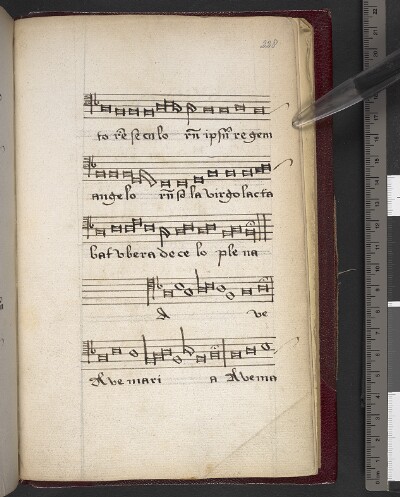 228
to rē se cu lo rū ipsū re gem
ange lo rū se la virgo lacta
bat vbera de ce lo ple na
A ve
Ave mari a Ave ma